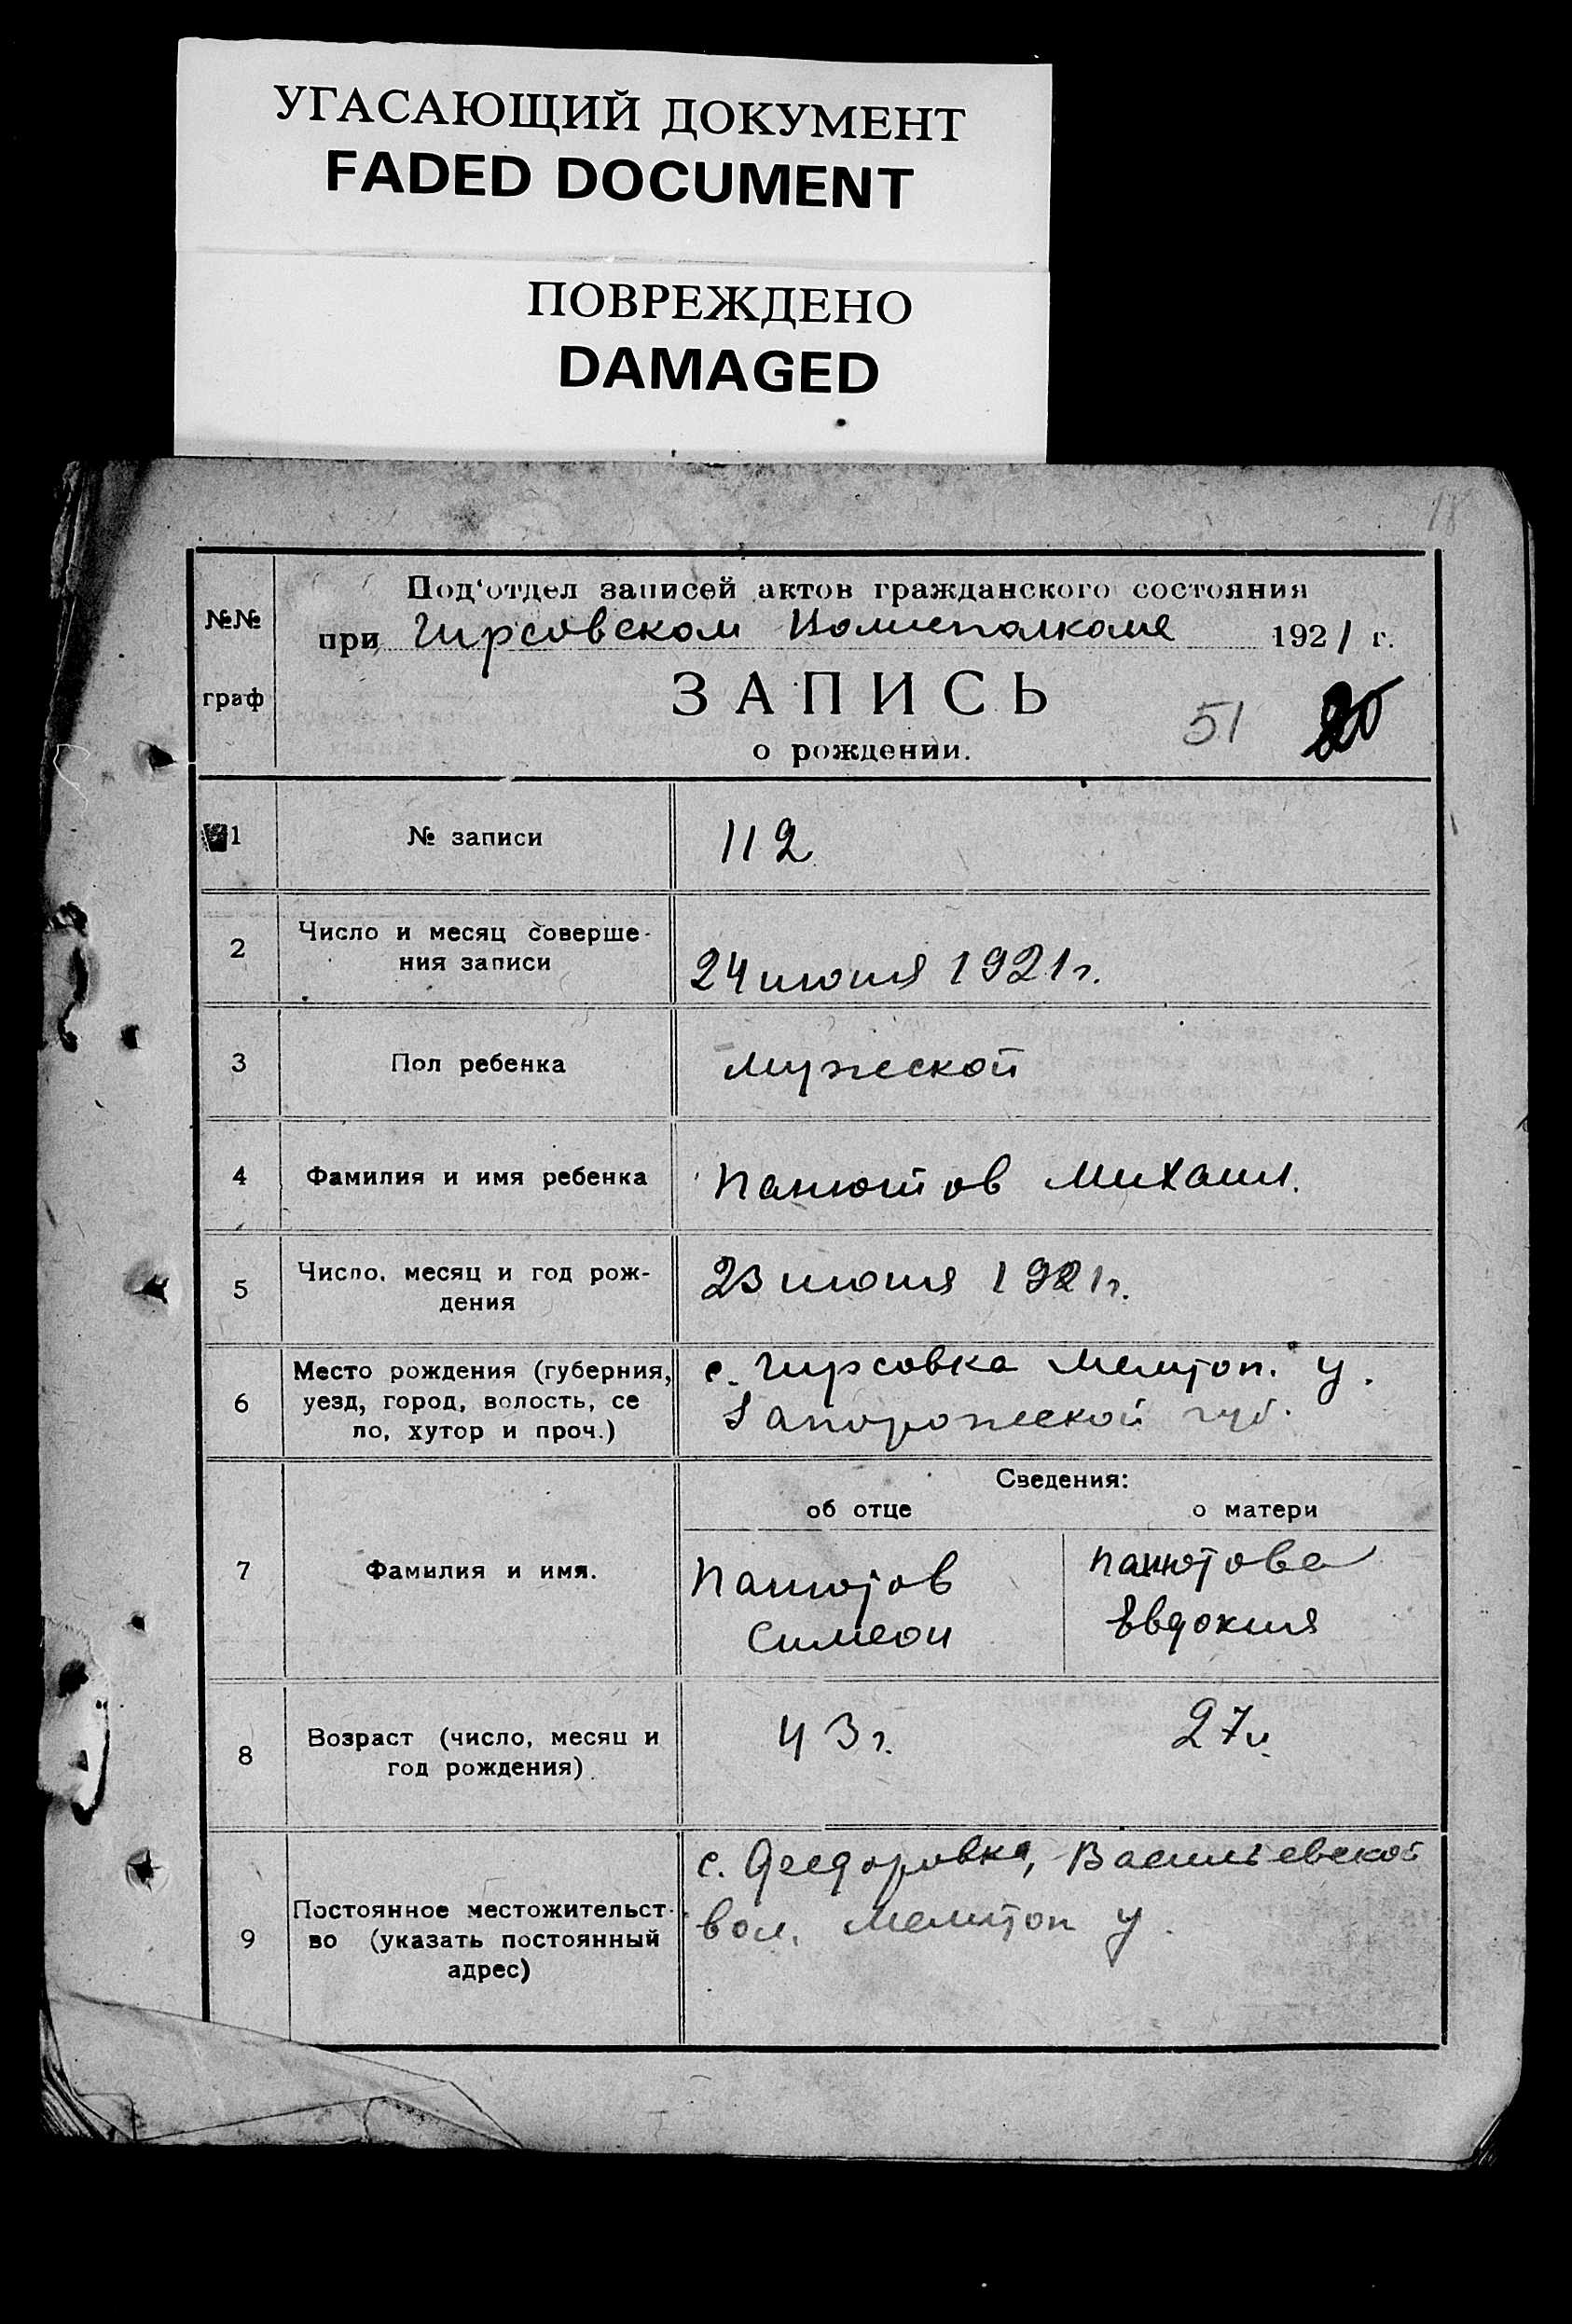 УГАСАЮЩИЙ ДОКУМЕНТ
FADED DOCUMENT
ПОВРЕЖДЕНО
DAMAGED
18
№№
граф
Под'отдел записей актов гражданского состояния
при Гирсовском Волисполкоме 1921 г.
ЗАПИСЬ
51
о рождении.
1 № записи 112
2 Число и месяц соверше-
ния записи 24 июня 1921 г.
3 Пол ребенка мужской
4 Фамилия и имя ребенка Панютов Михаил.
5 Число, месяц и год рож-
дения 23 июня 1921 г.
6 Место рождения (губерния, с. Гирсовка Мелитоп. у.
уезд, город, волость, се Запорожской губ.
ло, хутор и проч.)
Сведения:
об отце о матери
7 Фамилия и имя. Панютов Панютова
Симеон Евдокия
8 Возраст (число, месяц и 43 г. 27 л.
год рождения)
9 Постоянное местожительст- с. Федоровка, Васильевской
во (указать постоянный вол. Мелитоп у.
адрес)